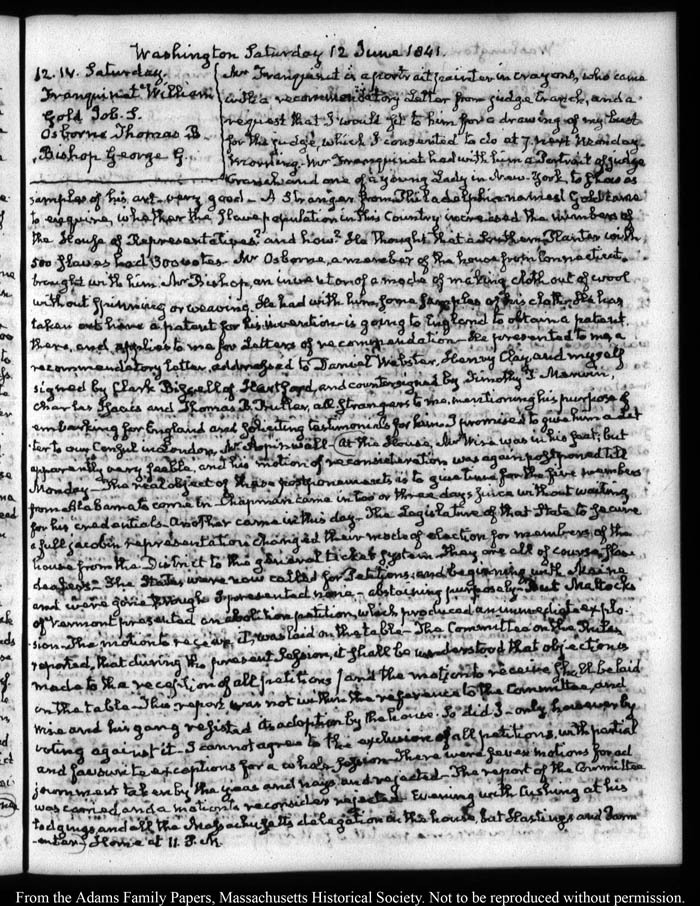 Washington Saturday 12 June 1841.
12. IV. Saturday.
Franquinet William
Gold Job. S.
Osborne Thomas B.
Bishop George G.
Mr Franquinet is a portrait painter in crayons, who came
with a recommendatory Letter from judge Cranch, and a
request that I would sit to him for a drawing of my bust
for the judge, which I consented to do at 7. next Monday
Morning. Mr Franquinet had with him a Portrait of judge
Cranch and one of a young Lady in New-York, to show as
samples of his art—very good— A Stranger from Philadelphia named Gold came
to enquire, whether the slave population in this Country increased the numbers of
the House of Representatives? and how? He thought that a Southern Planter with
500 slaves had 300 votes— Mr Osborne, a member of the house from Connecticut
brought with him Mr Bishop, an inventor of a mode of making cloth out of wool
without spinning or weaving. He had with him some samples of his cloth. He has
taken out here a patent for his invention—is going to England to obtain a patent
there, and applies to me for Letters of recommendation— He presented to me a
recommendatory Letter, addressed to Daniel Webster, Henry Clay, and myself
signed by Clark Bissell of Hartford, and countersigned by Timothy T.
Charles and Thomas B. all strangers to me, mentioning his purpose of
embarking for England and soliciting testimonials for him. I promised to give him a Let
ter to our Consul in London, Mr Aspinwall— At the House, Mr Wise was in his seat; but
apparently very feeble, and his motion of reconsideration was again postponed till
Monday— The real object of these postponements is to give time for the five members
from Alabama to come in— Chapman came in two or three days since without waiting
for his credentials. Another came in this day— The Legislature of that State to secure
a full jacobin representation changed their mode of election for members of the
house from the District to the general ticket system. They are all of course
The States were now called for Petitions; and beginning with Maine
and were gone through. I presented none—abstaining purposely— But Mattocks
of Vermont presented an abolition petition, which produced an immediate explo-
sion— The motion to receive it was laid on the table— The Committee on the Rules
reported, that during the present Session, it shall be understood that objection is
made to the reception of all petitions, and the motion to receive shall be laid
on the table— This report was not within the reference to the Committee, and
Wise and his gang resisted its adoption by the house. So did I—only however by
voting against it— I cannot agree to the exclusion of all petitions, with partial
and favourite exceptions for a whole Session— There were seven motions for ad
journment taken by the yeas and nays and rejected— The report of the Committee
was carried, and a motion to reconsider rejected. Evening with Cushing at his
lodgings and all the Massachusetts delegation in the house, but Hastings and Parm
-enter. Home at 11. P.M.
From the Adams Family Papers, Massachusetts Historical Society. Not to be reproduced without permission.